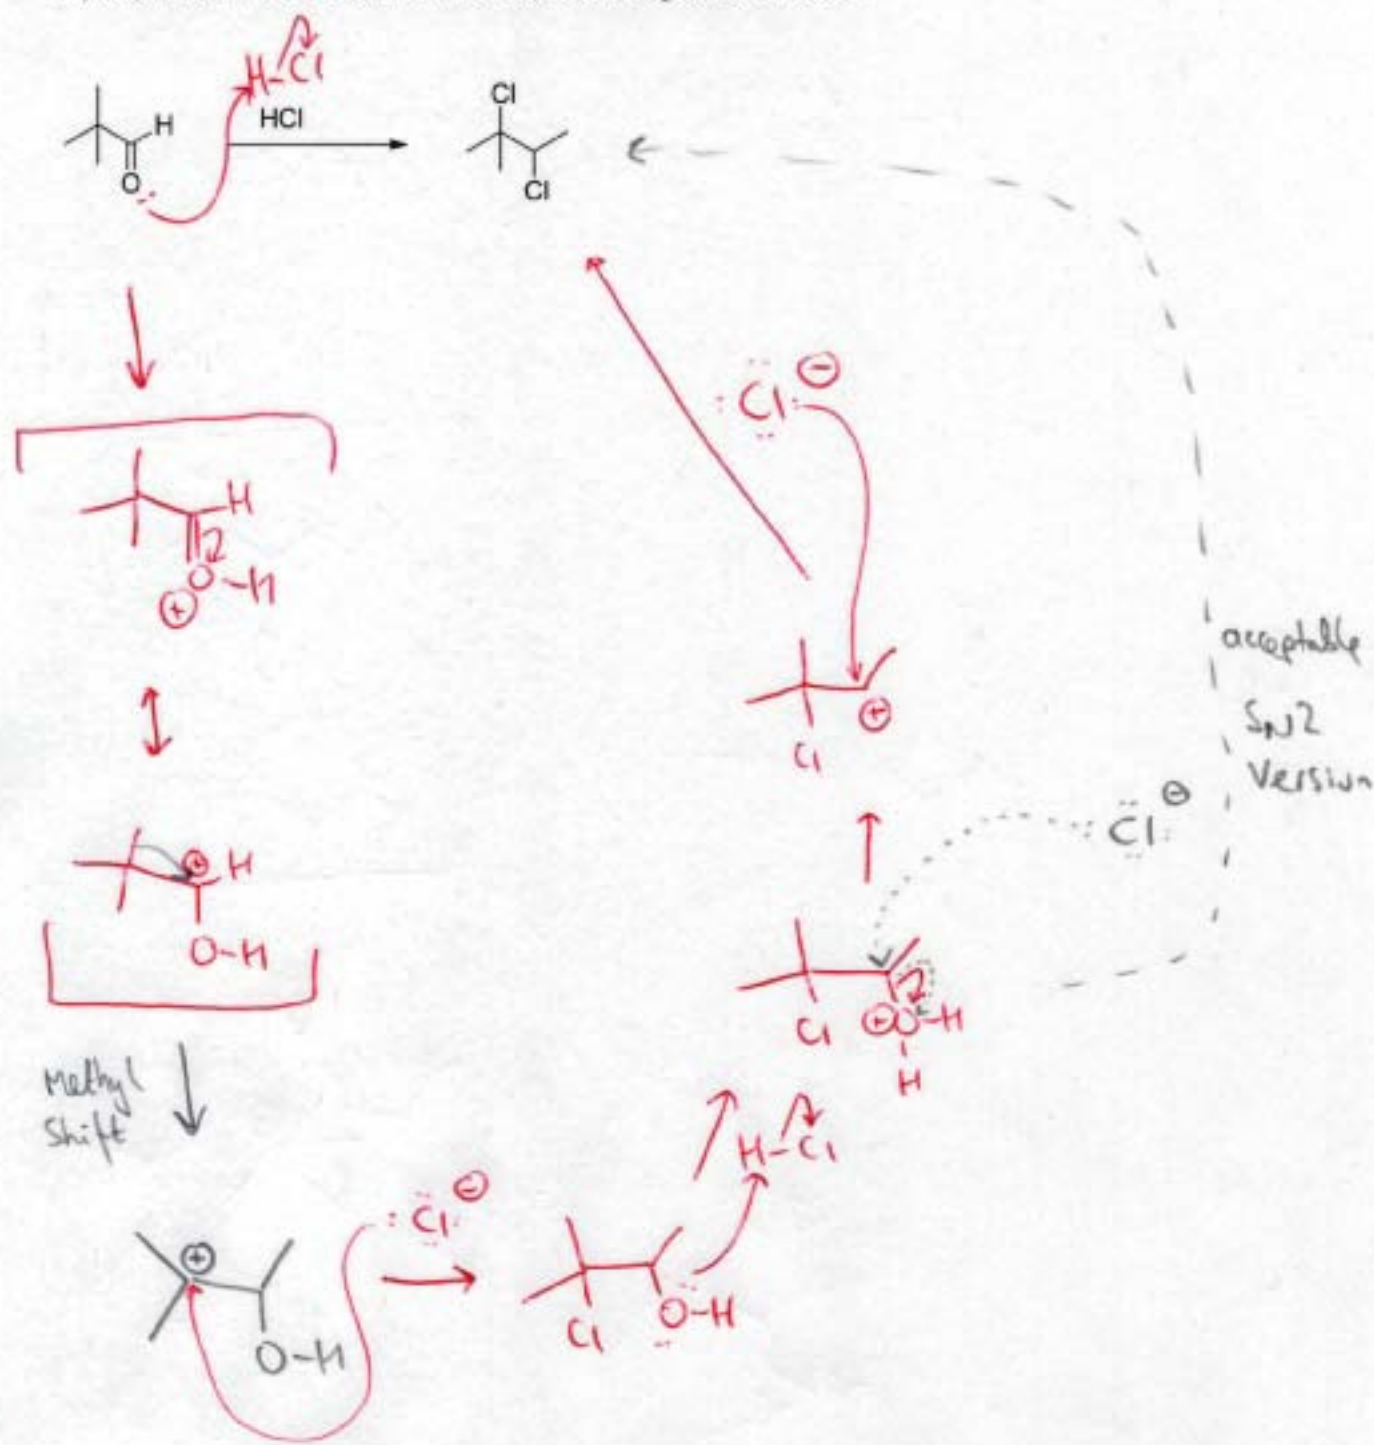 H-Cl
HCl
H
O
Cl
Cl
:Cl: ⊖
H
O-H
⊕
⊕ H
O-H
Methyl
Shift
⊕
O-H
:Cl: ⊖
Cl
O-H
H-Cl
Cl
⊕O-H
H
Cl
⊕
:Cl: ⊖
acceptable
SN2
Version